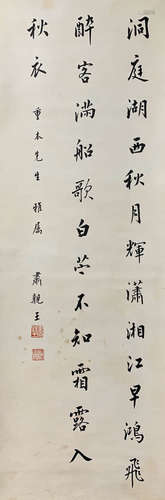 洞庭湖西秋月輝瀟湘江早鴻飛
醉客滿船歌白苧不知霜露入
秋衣
重本先生雅屬
肅親王